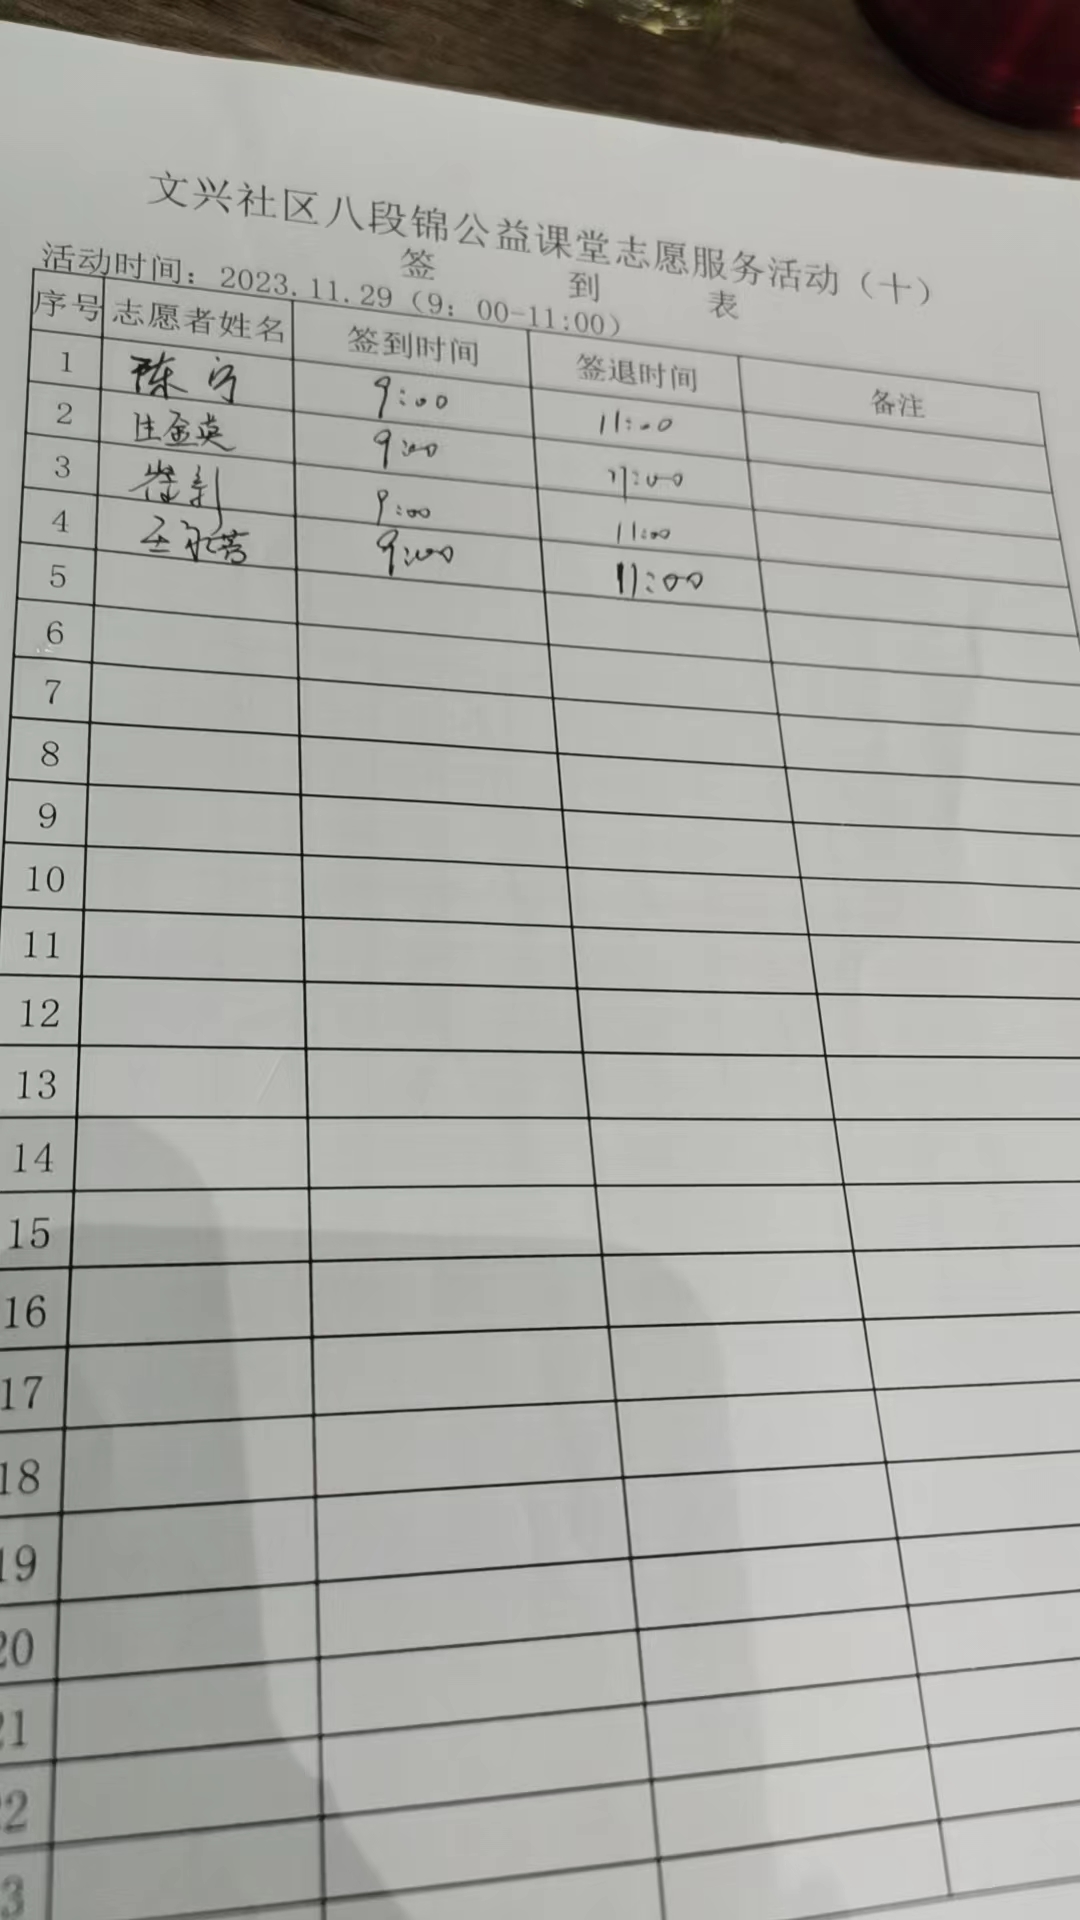 文兴社区八段锦公益课堂志愿服务活动（十）
签 到 表
活动时间：2023.11.29（9：00-11:00）
序号 志愿者姓名 签到时间 签退时间 备注
1 陈宁 9:00 11:00
2 金英 9:00 11:00
3 崔 9:00 11:00
4 王 9:00 11:00
5
6
7
8
9
10
11
12
13
14
15
16
17
18
19
20
21
22
3